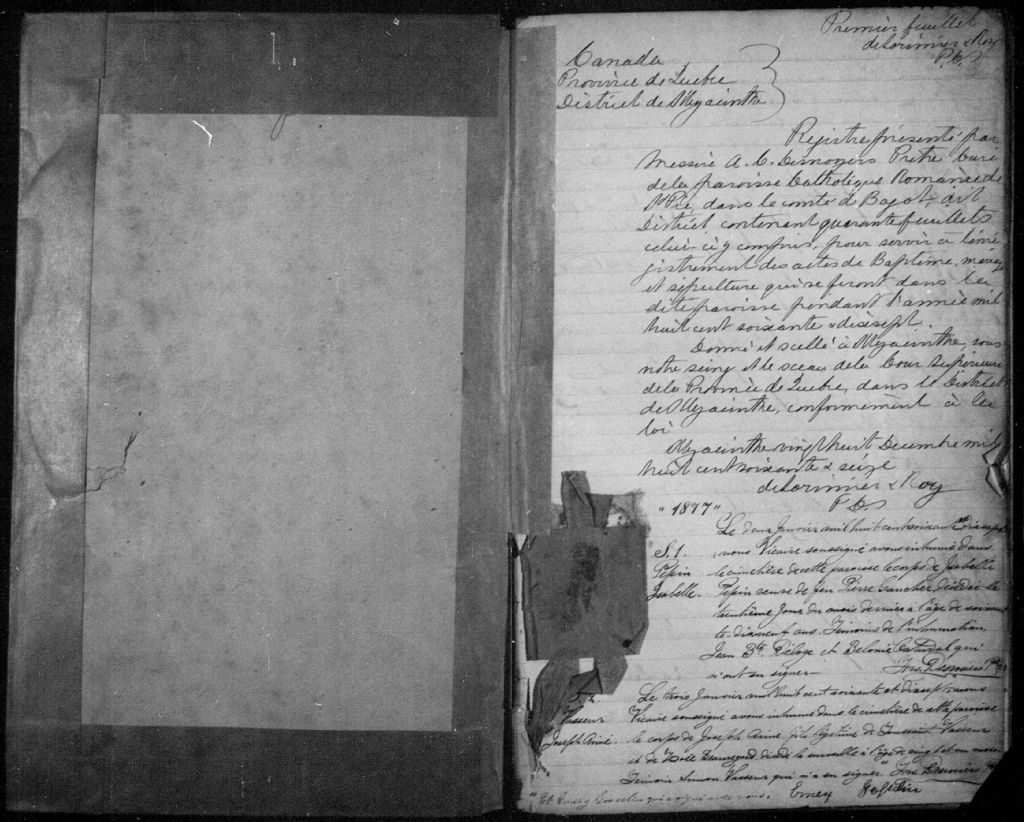 Premier feuillet
deLorimier & Roy
P.C.S
Canada
Province de Quebec
District de St Hyacinthe
Registre présenté par
Messire A. C. Desnoyers Prêtre Curé
de la paroisse Catholique Romaine de
St Pie, dans le comté de Bagot, dit
District, contenant quarante feuillets
celui-ci y compris, pour servir à l'enré
gistrement des actes de Baptême, mariage
et sépulture qui se feront dans la
dite paroisse pendant l'année mil
huit cent soixante & dixsept.
Donné et scellé à St Hyacinthe, sous
notre seing et le sceau de la Cour Supérieure
de la Province de Quebec, dans le District
de St Hyacinthe, conformément à la
loi
St Hyacinthe vingt huit Decembre mil
huit cent soixante & seize
deLorimier & Roy
P.C.S
"1877"
Le deux Janvier mil huit cent soixante et dix sept
S.1. nous Vicaire soussigné avons inhumé dans
Pepin le cimetière de cette paroisse le corps de Isabelle
Isabelle. Pepin veuve de feu Pierre Gaucher, décédée le
trentième jour du mois dernier à l'âge de soixan
te-dix neuf ans. Témoins de l'inhumation,
Jean Bte. Déloge et Belonie Cadudal qui
n'ont su signer -
S2. Le trois Janvier mil huit cent soixante et dix sept nous
Vasseur Vicaire soussigné avons inhumé dans le cimetière de cette paroisse
Joseph Aimé le corps de Joseph Aimé fils légitime de Toussaint Vasseur
et de Beauregard décédé la surveille à l'âge de cinq
Témoin Simon Vasseur qui n'a su signer
"Et Emery Gosselin qui a signé avec nous. Emery Gosselin